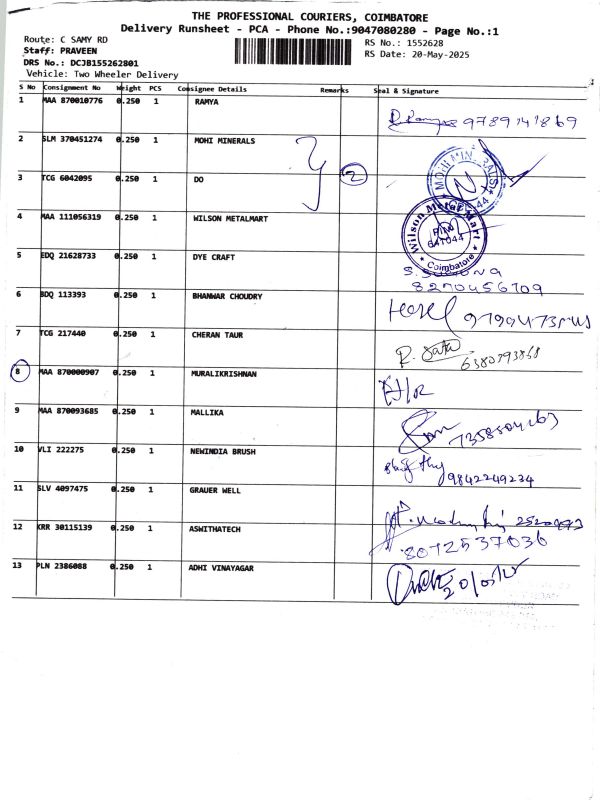 THE PROFESSIONAL COURIERS, COIMBATORE
Delivery Runsheet - PCA - Phone No.:9047080280 - Page No.:1
Route: C SAMY RD
RS No.: 1552628
Staff: PRAVEEN
RS Date: 20-May-2025
DRS No.: DCJB155262801
Vehicle: Two Wheeler Delivery
S No Consignment No Weight PCS Consignee Details Remarks Seal & Signature
1 MAA 870010776 0.250 1 RAMYA
9789141869
2 SLM 370451274 0.250 1 MOHI MINERALS
3 TCG 6042095 0.250 1 DO 2
4 MAA 111056319 0.250 1 WILSON METALMART
Wilson Metal Mart
PIN
641044
Coimbatore
5 EDQ 21628733 0.250 1 DYE CRAFT
8270456709
6 BDQ 113393 0.250 1 BHANWAR CHOUDRY
7 TCG 217440 0.250 1 CHERAN TAUR
6380793868
8 MAA 870000907 0.250 1 MURALIKRISHNAN
9 MAA 870093685 0.250 1 MALLIKA
10 VLI 222275 0.250 1 NEWINDIA BRUSH
9842249234
11 SLV 4097475 0.250 1 GRAUER WELL
12 KRR 30115139 0.250 1 ASWITHATECH
8072537036
13 PLN 2386088 0.250 1 ADHI VINAYAGAR